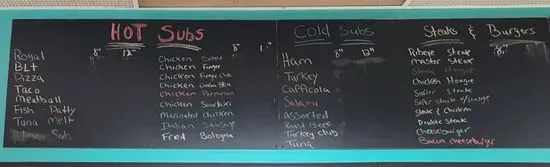 HOT SUBS
8" 12"
Royal
BLT
Pizza
Taco
Meatball
Fish - Patty
Tuna Melt
Sub
8" 1"
Chicken
Chicken Finger
Chicken Finger Club
Chicken Cordon Bleu
Chicken Parmesan
Chicken Souvlaki
Marinated Chicken
Italian Sausage
Fried Bologna
Cold Subs
8" 12"
Ham
Turkey
Cappicola
Salami
assorted
Roast Beef
Turkey Club
Tuna
Steaks & Burgers
8"
Ribeye Steak
Master Steak
Steak Hoagie
Chicken Hoagie
Super Steak
Super Steak w/Sausage
Steak & Chicken
Double Steak
Cheeseburger
Bacon Cheeseburger